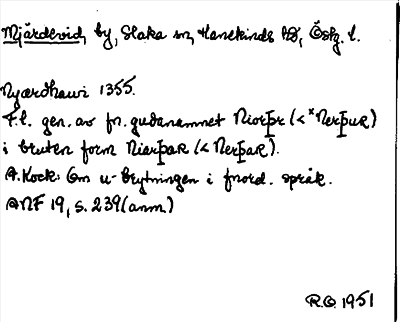 Mjärdevid, by, Slaka sn, Hanekinds hd, Östg. l.
Nyærdhawi 1355.
F.l. gen. av fn. gudanamnet Niorþr (< *Nerþur)
i bruten form Niarþar (< Nerþar).
A. Kock: Om u-brytningen i fnord. språk.
ANF 19, s. 239 (anm.)
R.O. 1951